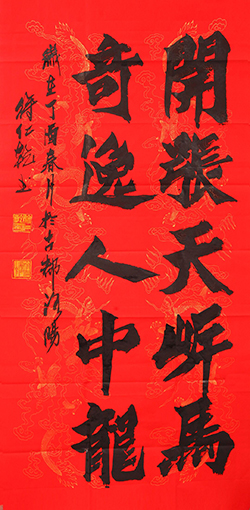 開張天岸馬
奇逸人中龍
歲在丁酉春月於古都洛陽
仁乾書